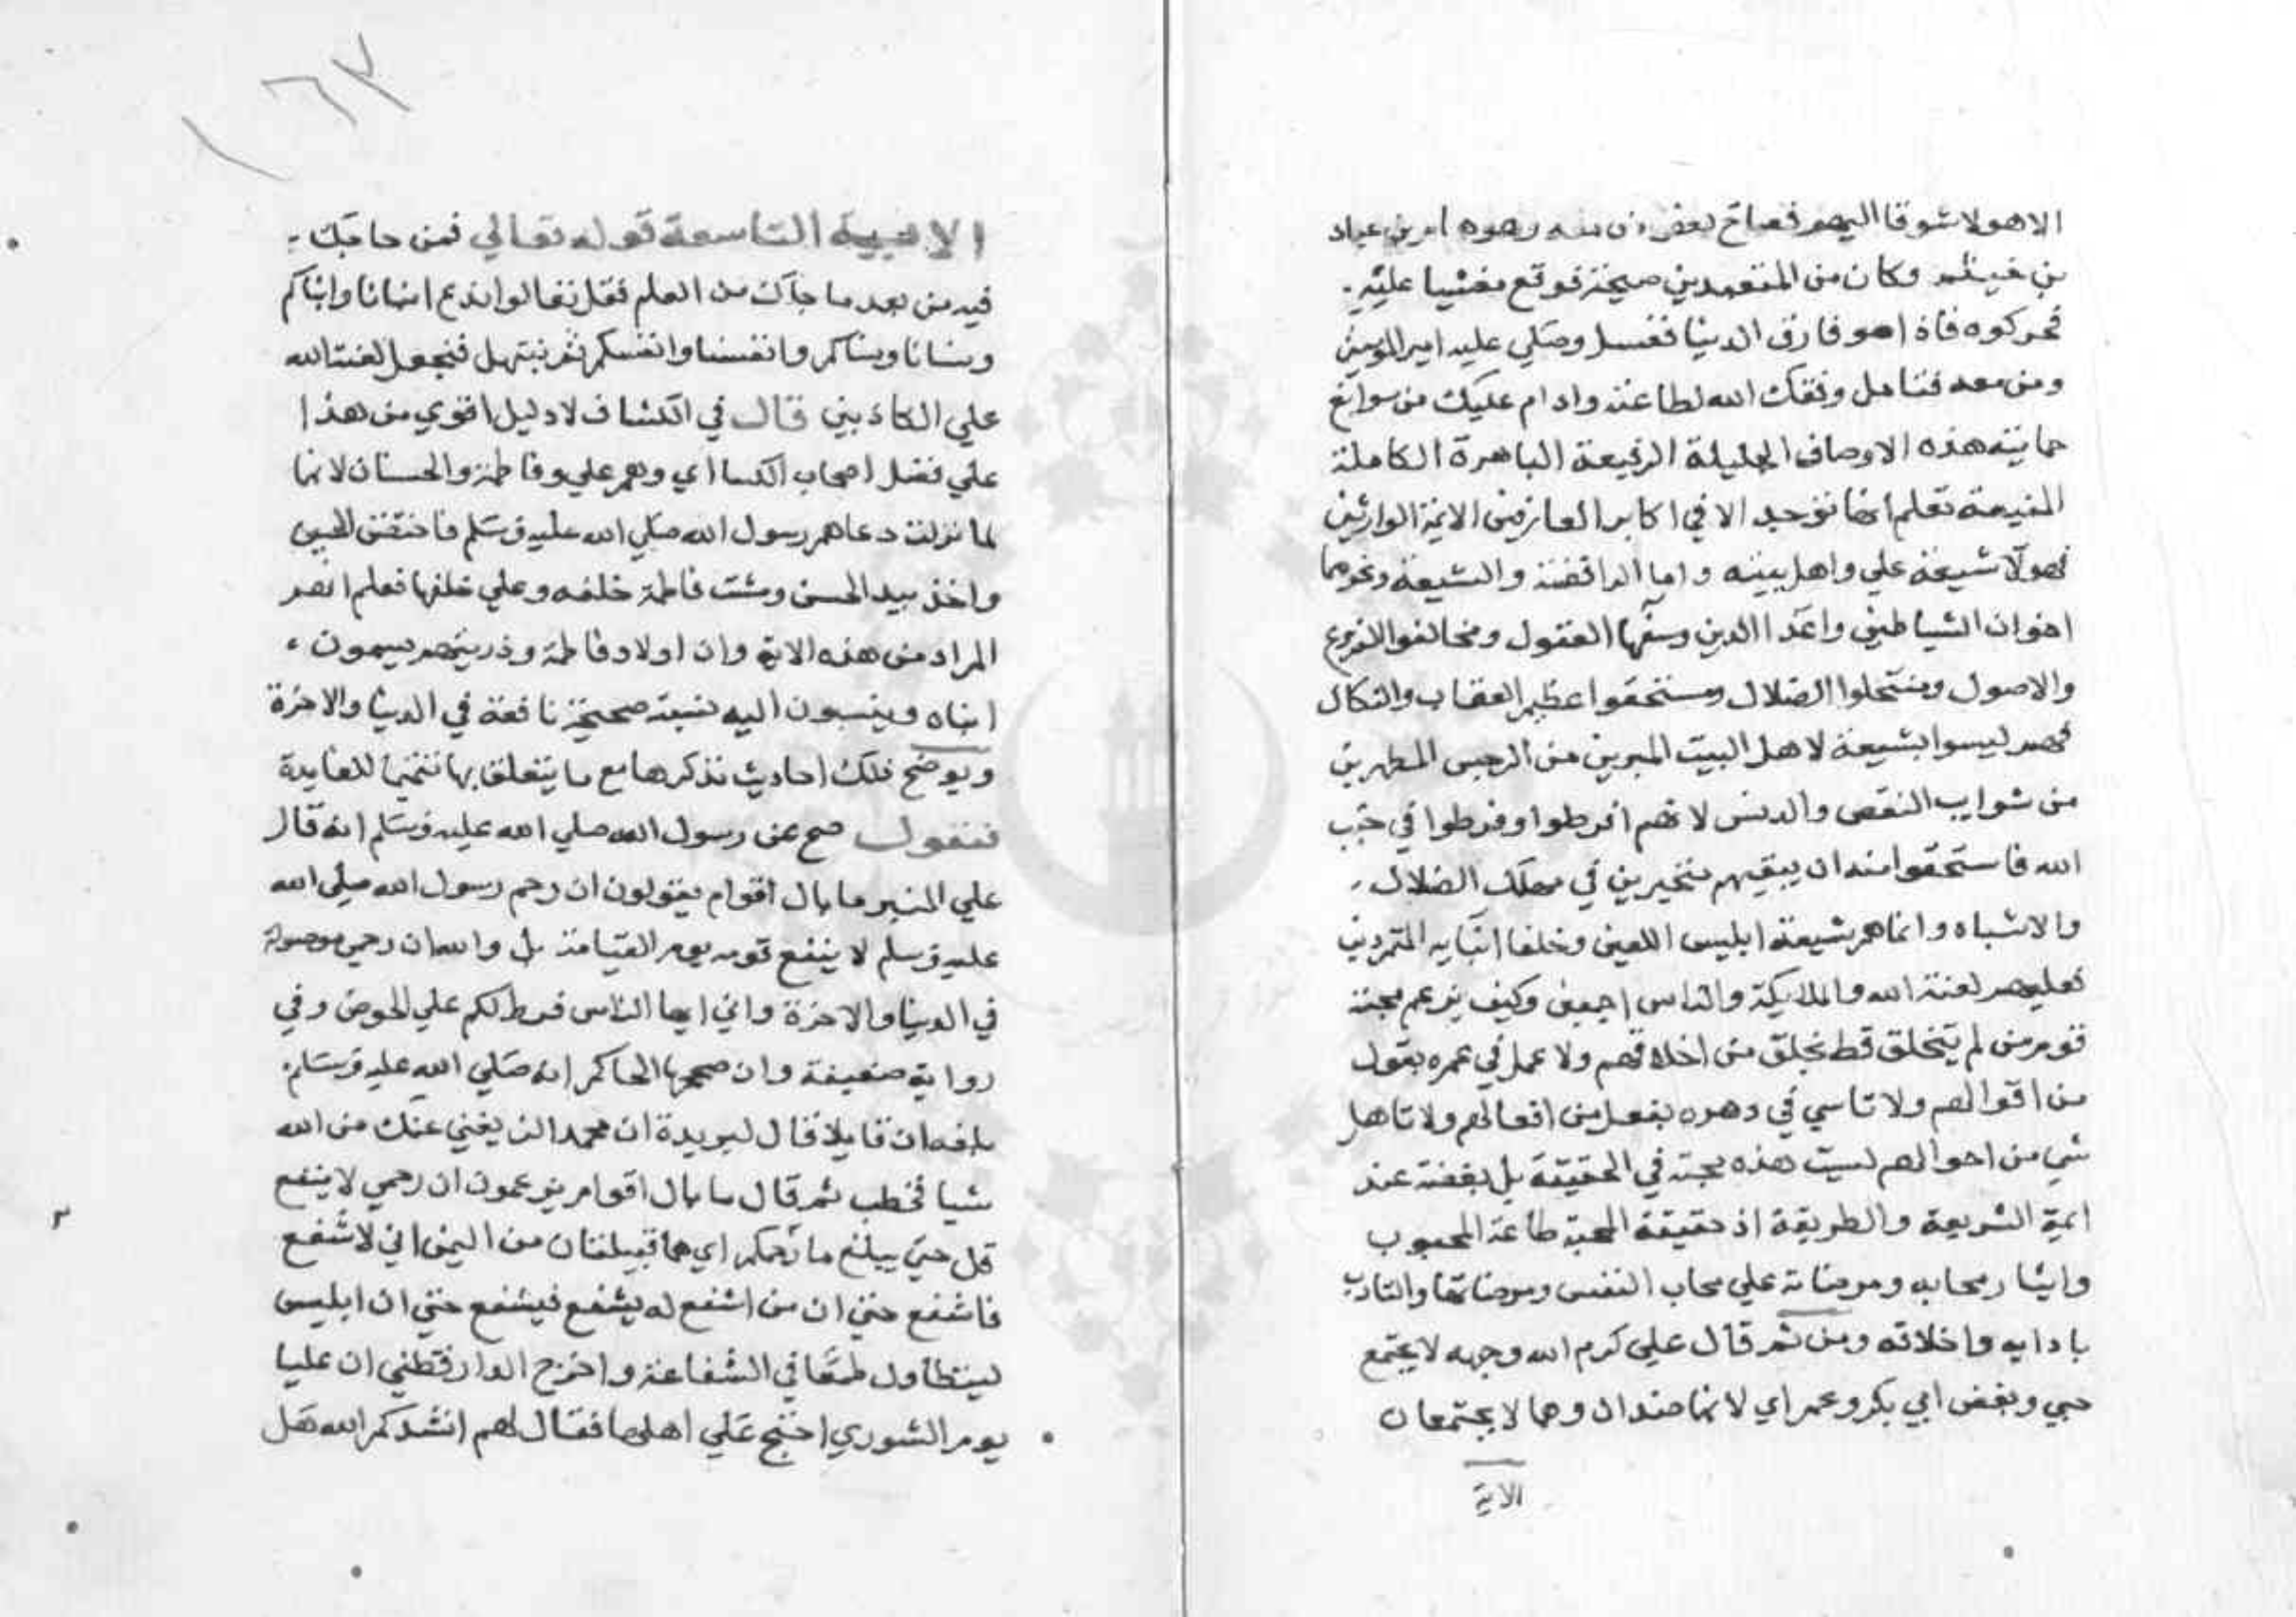 الاهولا شوقا اليهم فصاح بعض من معه وهو همام بن عباد
بن خيثم وكان من المتعبدين صيحة فوقع مغشيا عليه
فحركوه فاذا هو فارق الدنيا فغسل وصلي عليه امير المومنين
ومن معه فتامل وفقك الله لطاعته وادام عليك من سوابغ
حمايته هذه الاوصاف الجليلة الرفيعة الباهرة الكاملة
المنيعة تعلم انها لا توجد الا في اكابر العارفين الايمة الوارثين
فهولآ شيعة علي واهل بيته واما الرافضة والشيعة ونحوهما
اخوان الشياطين واعدا الدين وسفها العقول ومخالفوا الفروع
والاصول ومنتحلوا الضلال ومستحقوا عظيم العقاب والنكال
فهم ليسوا بشيعة لاهل البيت المبرين من الرجس المطهرين
من شوايب النقص والدنس لانهم افرطوا وفرطوا في جنب
الله فاستحقوا منه ان يبقيهم متحيرين في مهلك الضلال
والاشباه وانما هم شيعة ابليس اللعين وخلفا ابنايه المتمردين
فعليهم لعنة الله والملايكة والناس اجمعين وكيف يزعم محبة
قوم من لم يتخلق قط بخلق من اخلاقهم ولا عمل في عمره بقول
من اقوالهم ولا تاسي في دهره بفعل من افعالهم ولا تاهل
شي من احوالهم ليست هذه محبة في الحقيقة بل بغضة عند
ايمة الشريعة والطريقة اذ حقيقة المحبة طاعة المحبوب
وايثار محابه ومرضاته علي محاب النفس ومرضاتها والتادب
بادابه واخلاقه ومن ثم قال علي كرم الله وجهه لا يجتمع
حبي وبغض ابي بكر وعمر اي لانهما ضدان وهما لا يجتمعان
الاية
١٦٣
الاية التاسعة قوله تعالي فمن حاجك
فيه من بعد ما جآك من العلم فقل تعالوا ندع ابنانا وابناكم
ونسانا ونساكم وانفسنا وانفسكم ثم نبتهل فنجعل لعنت الله
علي الكاذبين قال في الكشاف لا دليل اقوي من هذا
علي فضل اصحاب الكسا اي وهم علي وفاطمة والحسنان لانها
لما نزلت دعاهم رسول الله صلي الله عليه وسلم فاحتضن الحسين
واخذ بيد الحسن ومشت فاطمة خلفه وعلي خلفها فعلم انهم
المراد من هذه الاية وان اولاد فاطمة وذريتهم يسمون
ابناه وينسبون اليه نسبة صحيحة نافعة في الدنيا والاخرة
ويوضح ذلك احاديث نذكرها مع ما يتعلق بها تتميما للفايدة
فنقول صح عن رسول الله صلي الله عليه وسلم انه قال
علي المنبر ما بال اقوام يقولون ان رحم رسول الله صلي الله
عليه وسلم لا ينفع قومه يوم القيامة بل والله ان رحمي موصولة
في الدنيا والاخرة واني ايها الناس فرط لكم علي الحوض وفي
رواية ضعيفة وان صححها الحاكم انه صلي الله عليه وسلم
بلغه ان قايلا قال لبريدة ان محمدا لن يغني عنك من الله
شيا فخطب ثم قال ما بال اقوام يزعمون ان رحمي لا ينفع
كل حتي يبلغ اي هما قبيلتان من اليمن اني لاشفع
فاشفع حتي ان من اشفع له يشفع فيشفع حتي ان ابليس
ليتطاول طمعا في الشفاعة واخرج الدارقطني ان عليا
يوم الشوري احتج علي اهلها فقال لهم انشدكم الله هل